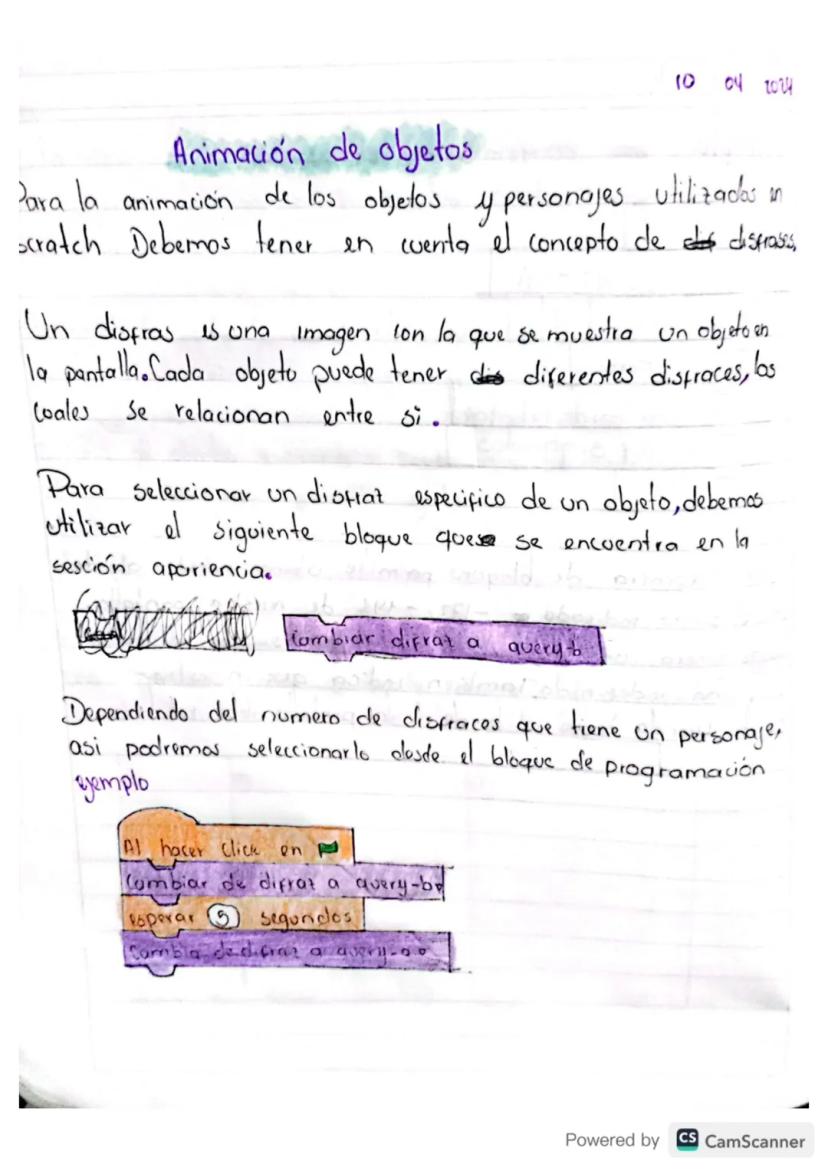 10 04 2024
Animación de objetos
Para la animación de los objetos y personajes utilizados en
scratch Debemos tener en cuenta el concepto de disfrases,
Un disfras es una imagen con la que se muestra un objeto en
la pantalla. Cada objeto puede tener diferentes disfraces, los
cuales se relacionan entre si.
Para seleccionar un disfraz especifico de un objeto, debemos
utilizar el siguiente bloque que se encuentra en la
sesción apariencia.
Cambiar difraz a query-b
Dependiendo del numero de disfraces que tiene un personaje,
asi podremos seleccionarlo desde el bloque de programación
ejemplo
Al hacer click en
Cambiar de difraz a query-b
esperar 5 segundos
Cambia de difraz a query-a
Powered by CS CamScanner